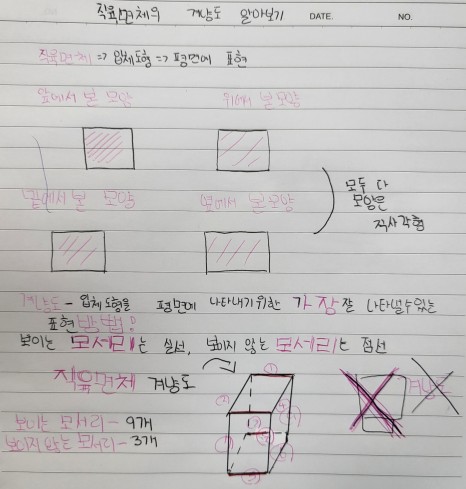 직육면체의 겨냥도 알아보기 DATE. NO.
직육면체 => 입체도형 => 평면에 표현
앞에서 본 모양 위에서 본 모양
밑에서 본 모양 옆에서 본 모양
모두 다
모양은
직사각형
겨냥도 - 입체도형을 평면에 나타내기위한 가장 잘 나타낼수있는
표현방법!
보이는 모서리는 실선, 보이지 않는 모서리는 점선
직육면체 겨냥도
겨냥도
보이는 모서리 - 9개
보이지 않는 모서리 - 3개